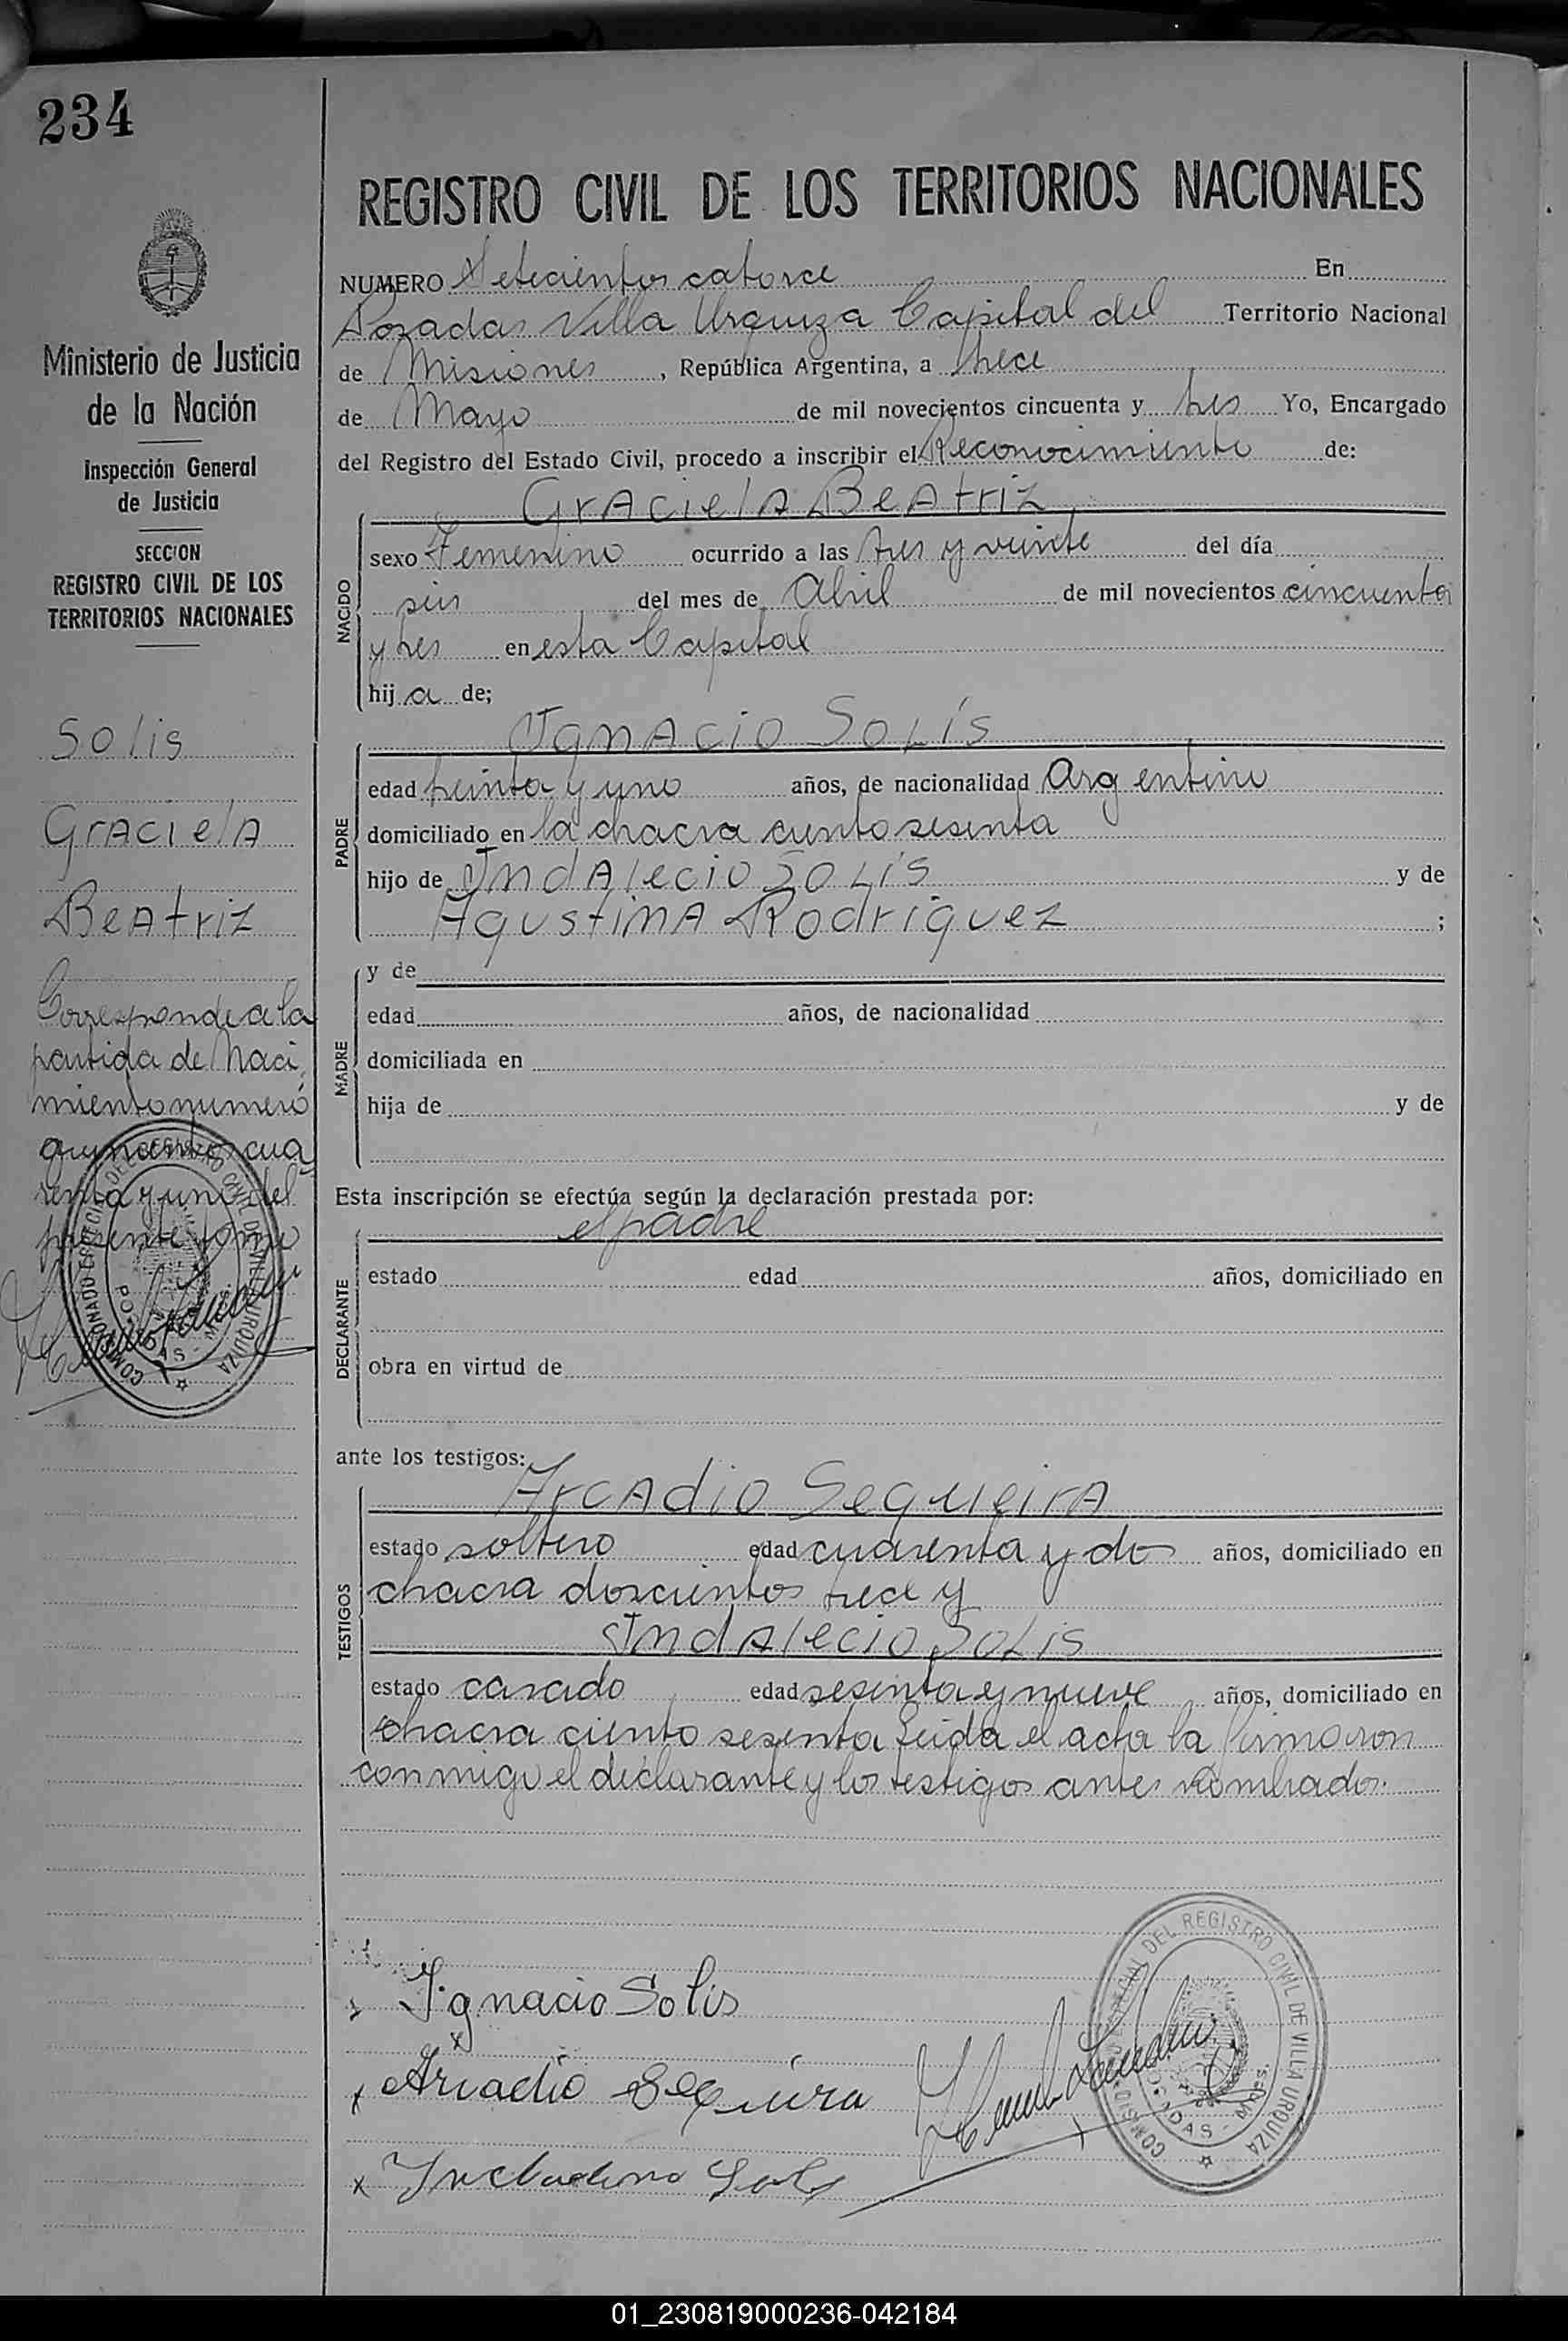 234
REGISTRO CIVIL DE LOS TERRITORIOS NACIONALES
NUMERO Setecientos catorce En
Posadas Villa Urquiza Capital del Territorio Nacional
de Misiones, República Argentina, a trece
de Mayo de mil novecientos cincuenta y tres Yo, Encargado
del Registro del Estado Civil, procedo a inscribir el Reconocimiento de:
Graciela Beatriz
NACIDO
sexo Femenino ocurrido a las tres y veinte del día
seis del mes de Abril de mil novecientos cincuenta
y tres en esta Capital
hija de;
PADRE
Ignacio Solís
edad treinta y uno años, de nacionalidad Argentino
domiciliado en la chacra ciento sesenta
hijo de Indalecio Solís y de
Agustina Rodriguez ;
MADRE
y de
edad años, de nacionalidad
domiciliada en
hija de y de
Esta inscripción se efectúa según la declaración prestada por:
DECLARANTE
el padre
estado edad años, domiciliado en
obra en virtud de
ante los testigos:
TESTIGOS
Arcadio Sequeira
estado soltero edad cuarenta y dos años, domiciliado en
chacra doscientos trece y
Indalecio Solis
estado casado edad sesenta y nueve años, domiciliado en
chacra ciento sesenta Leida el acta la firmaron
conmigo el declarante y los testigos antes nombrados.
Ignacio Solis
COMISIONADO ESPECIAL DEL REGISTRO CIVIL DE VILLA URQUIZA
POSADAS - MNES.
Ministerio de Justicia
de la Nación
Inspección General
de Justicia
SECCION
REGISTRO CIVIL DE LOS
TERRITORIOS NACIONALES
Solis
Graciela
Beatriz
Corresponde a la
partida de Naci
miento numero
quinientos cua
renta y uno del
presente tomo
COMISIONADO ESPECIAL DEL REGISTRO CIVIL DE VILLA URQUIZA
POSADAS - MNES.
01_230819000236-042184